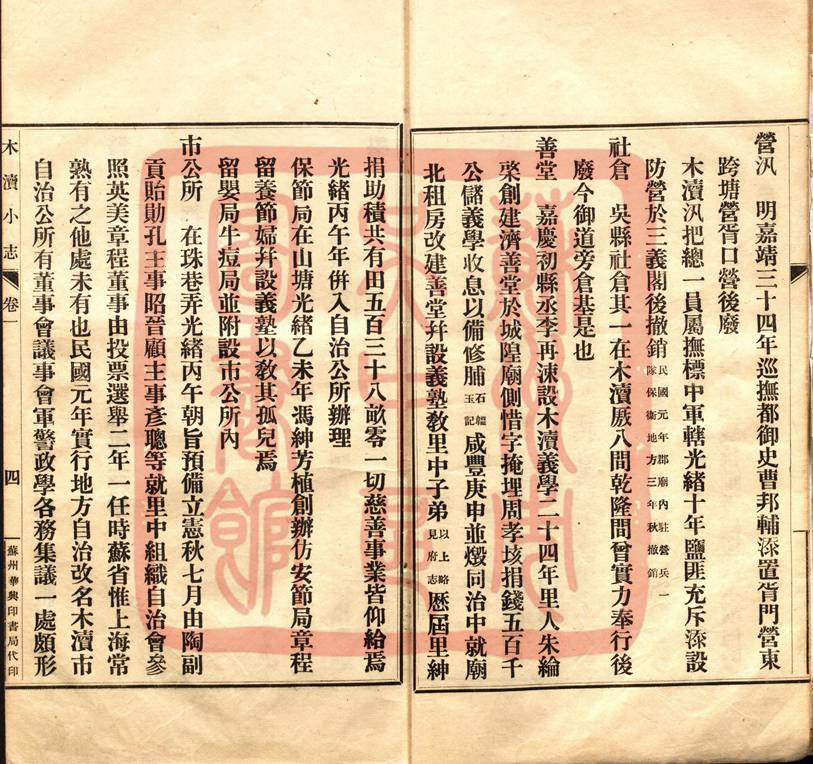 營汛　明嘉靖三十四年巡撫都御史曹邦輔添置胥門營東
跨塘營胥口營後廢
木瀆汛把總一員屬撫標中軍轄光緒十年鹽匪充斥添設
防營於三義閣後撤銷民國元年郡廟內駐營兵一隊保衛地方三年秋撤銷
社倉　吳縣社倉其一在木瀆厫八間乾隆間曾實力奉行後
廢今御道旁倉基是也
善堂　嘉慶初縣丞李再涑設木瀆義學二十四年里人朱綸
棨創建濟善堂於城隍廟側惜字掩埋周孝垓捐錢五百千
公儲義學收息以備修脯石韞玉記咸豐庚申並燬同治中就廟
北租房改建善堂幷設義塾敎里中子弟以上略見府志歷屆里紳
捐助積共有田五百三十八畝零一切慈善事業皆仰給焉
光緒丙午年併入自治公所辦理
保節局在山塘光緒乙未年馮紳芳植創辦仿安節局章程
留養節婦幷設義塾以敎其孤兒焉
留嬰局牛痘局並附設市公所內
市公所　在珠巷弄光緒丙午朝旨預備立憲秋七月由陶副
貢貽勛孔主事昭晉顧主事彥聰等就里中組織自治會參
照英美章程董事由投票選舉二年一任時蘇省惟上海常
熟有之他處未有也民國元年實行地方自治改名木瀆市
自治公所有董事會議事會軍警政學各務集議一處頗形
木瀆小志　卷一　四　蘇州華興印書局代印
蘇州
吳中區
圖書館